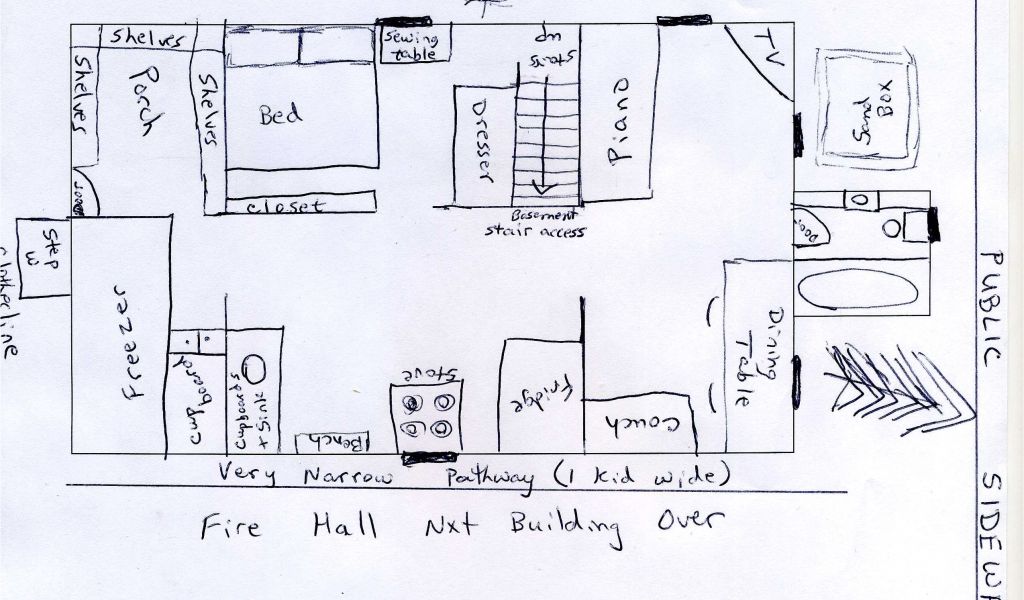 Shelves
Shelves
Porch
Shelves
Door
Step
W
Clotherline
Freezer
Bed
closet
Sewing
table
Dresser
up
stairs
Basement
stair access
Piano
TV
Sand
BOX
Door
PUBLIC SIDEWA
Dining
Table
cupboard
cupboards
+ Sink
Bench
Stove
Fridge
Couch
Very Narrow Pathway (1 kid wide)
Fire Hall Nxt Building Over